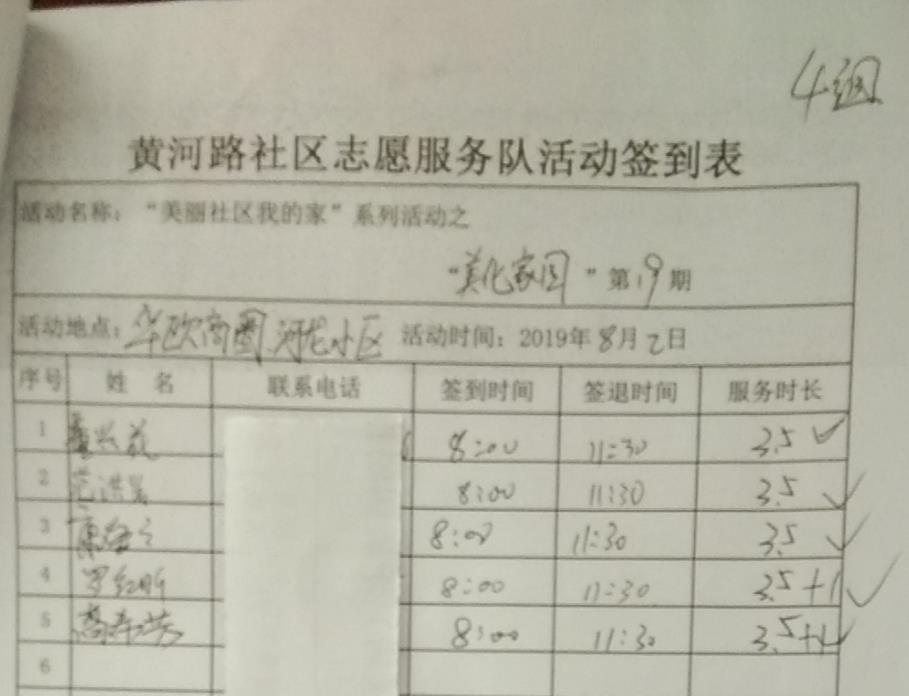 4组
黄河路社区志愿服务队活动签到表
活动名称：“美丽社区我的家”系列活动之
“美化家园”第19期
活动地点：华欧商圈.河龙小区 活动时间：2019年8月2日
序号 姓 名 联系电话 签到时间 签退时间 服务时长
1 8:00 11:30 3.5 ✓
2 范洪 8:00 11:30 3.5 ✓
3 8:00 11:30 3.5 ✓
4 罗红 8:00 11:30 3.5+1 ✓
5 8:00 11:30 3.5+1 ✓
6